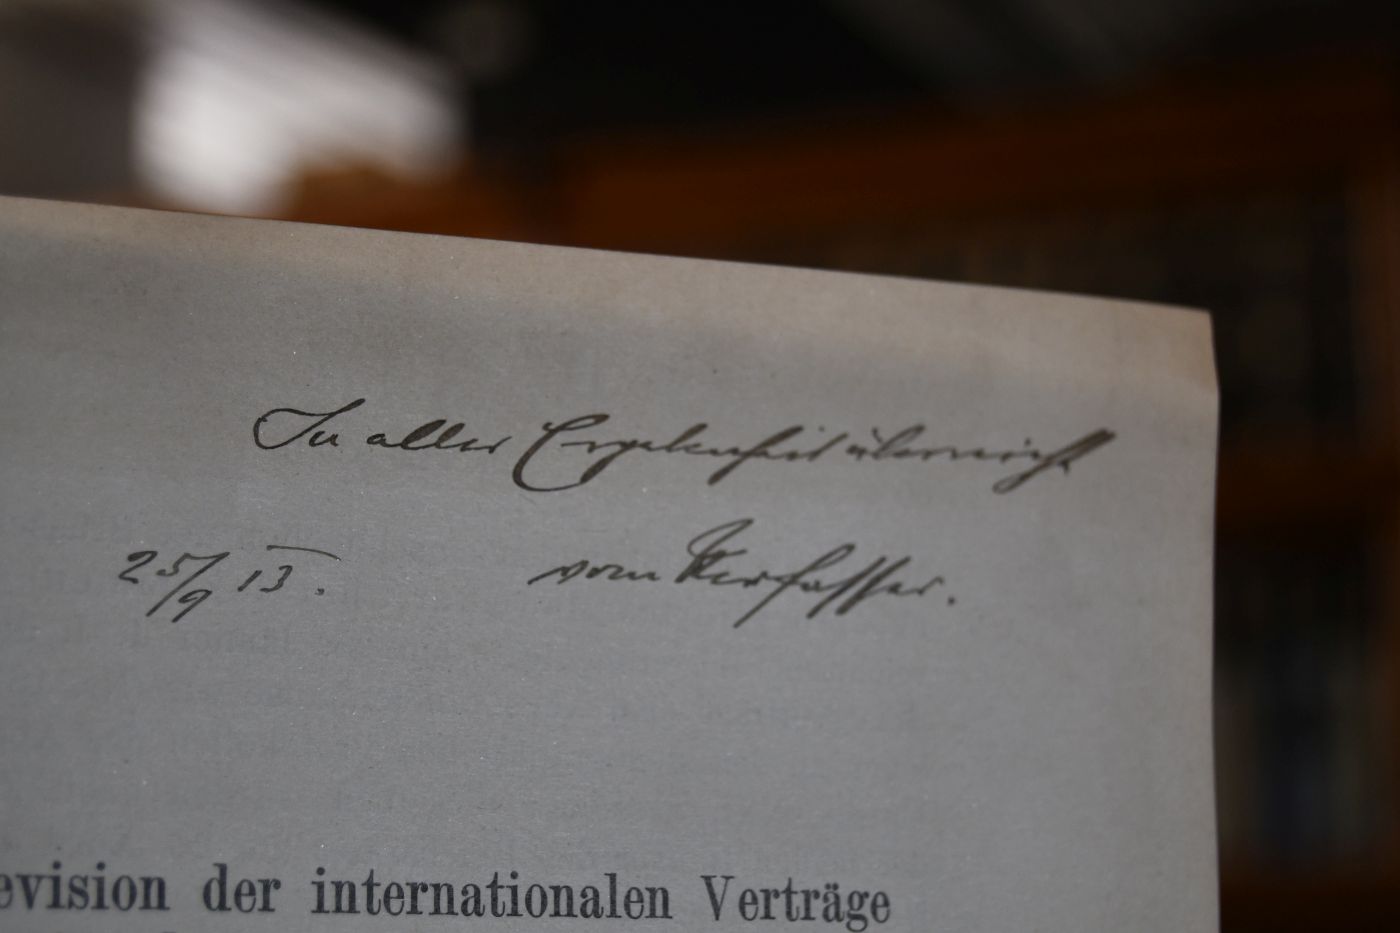 In aller Ergebenheit überreicht
25/9 13.
vom Verfasser.
evision der internationalen Verträge